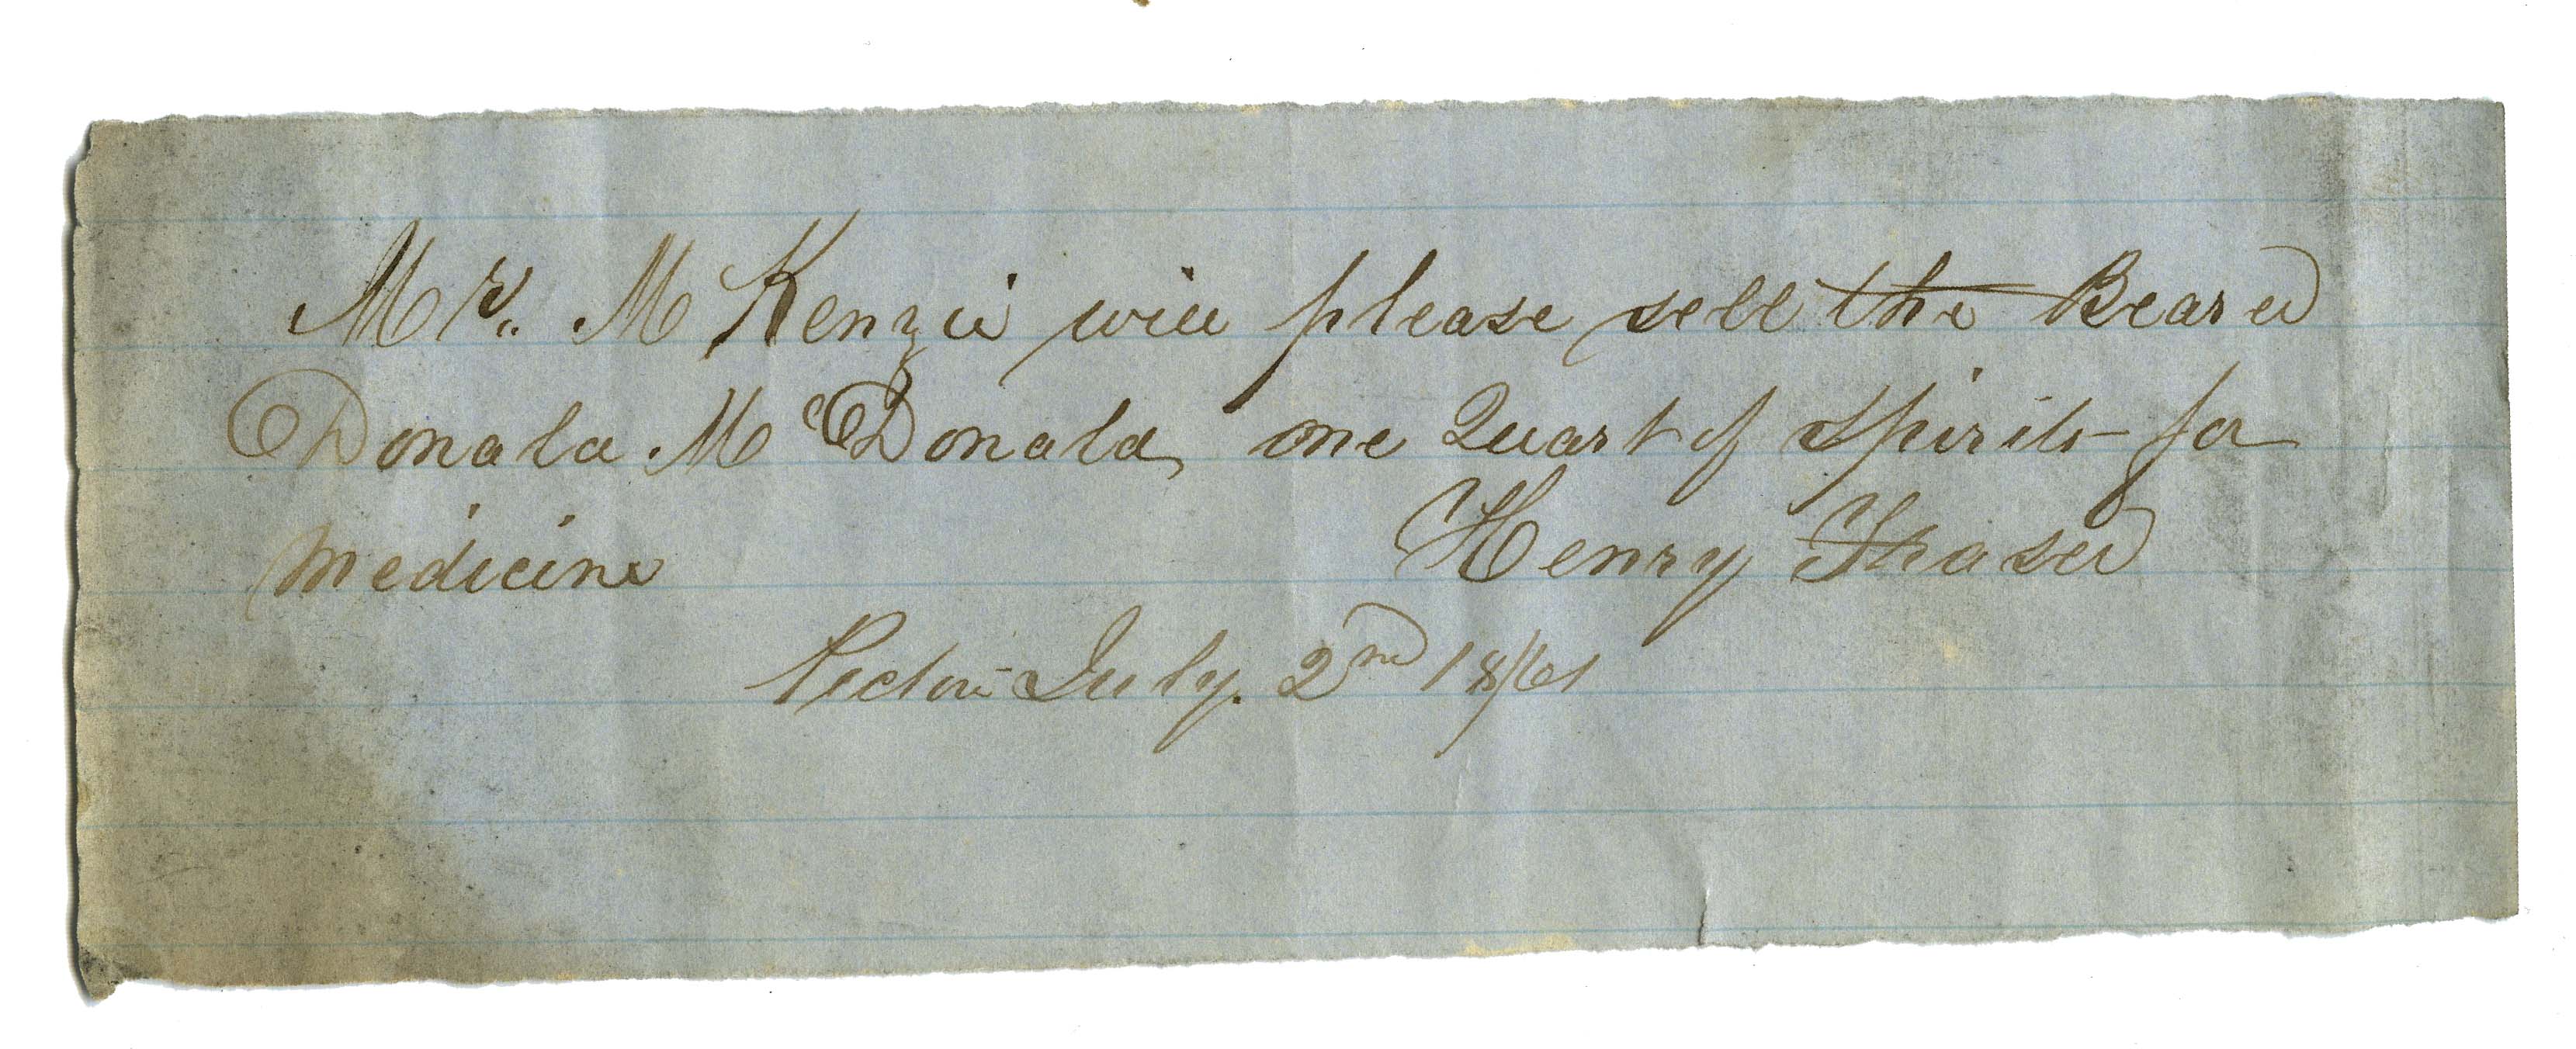 Mr. M Kenzie will please sell the Bearer
Donald McDonald one Quart of Spirits for
medicine
Henry Fraser
Pictou July. 2nd 1861